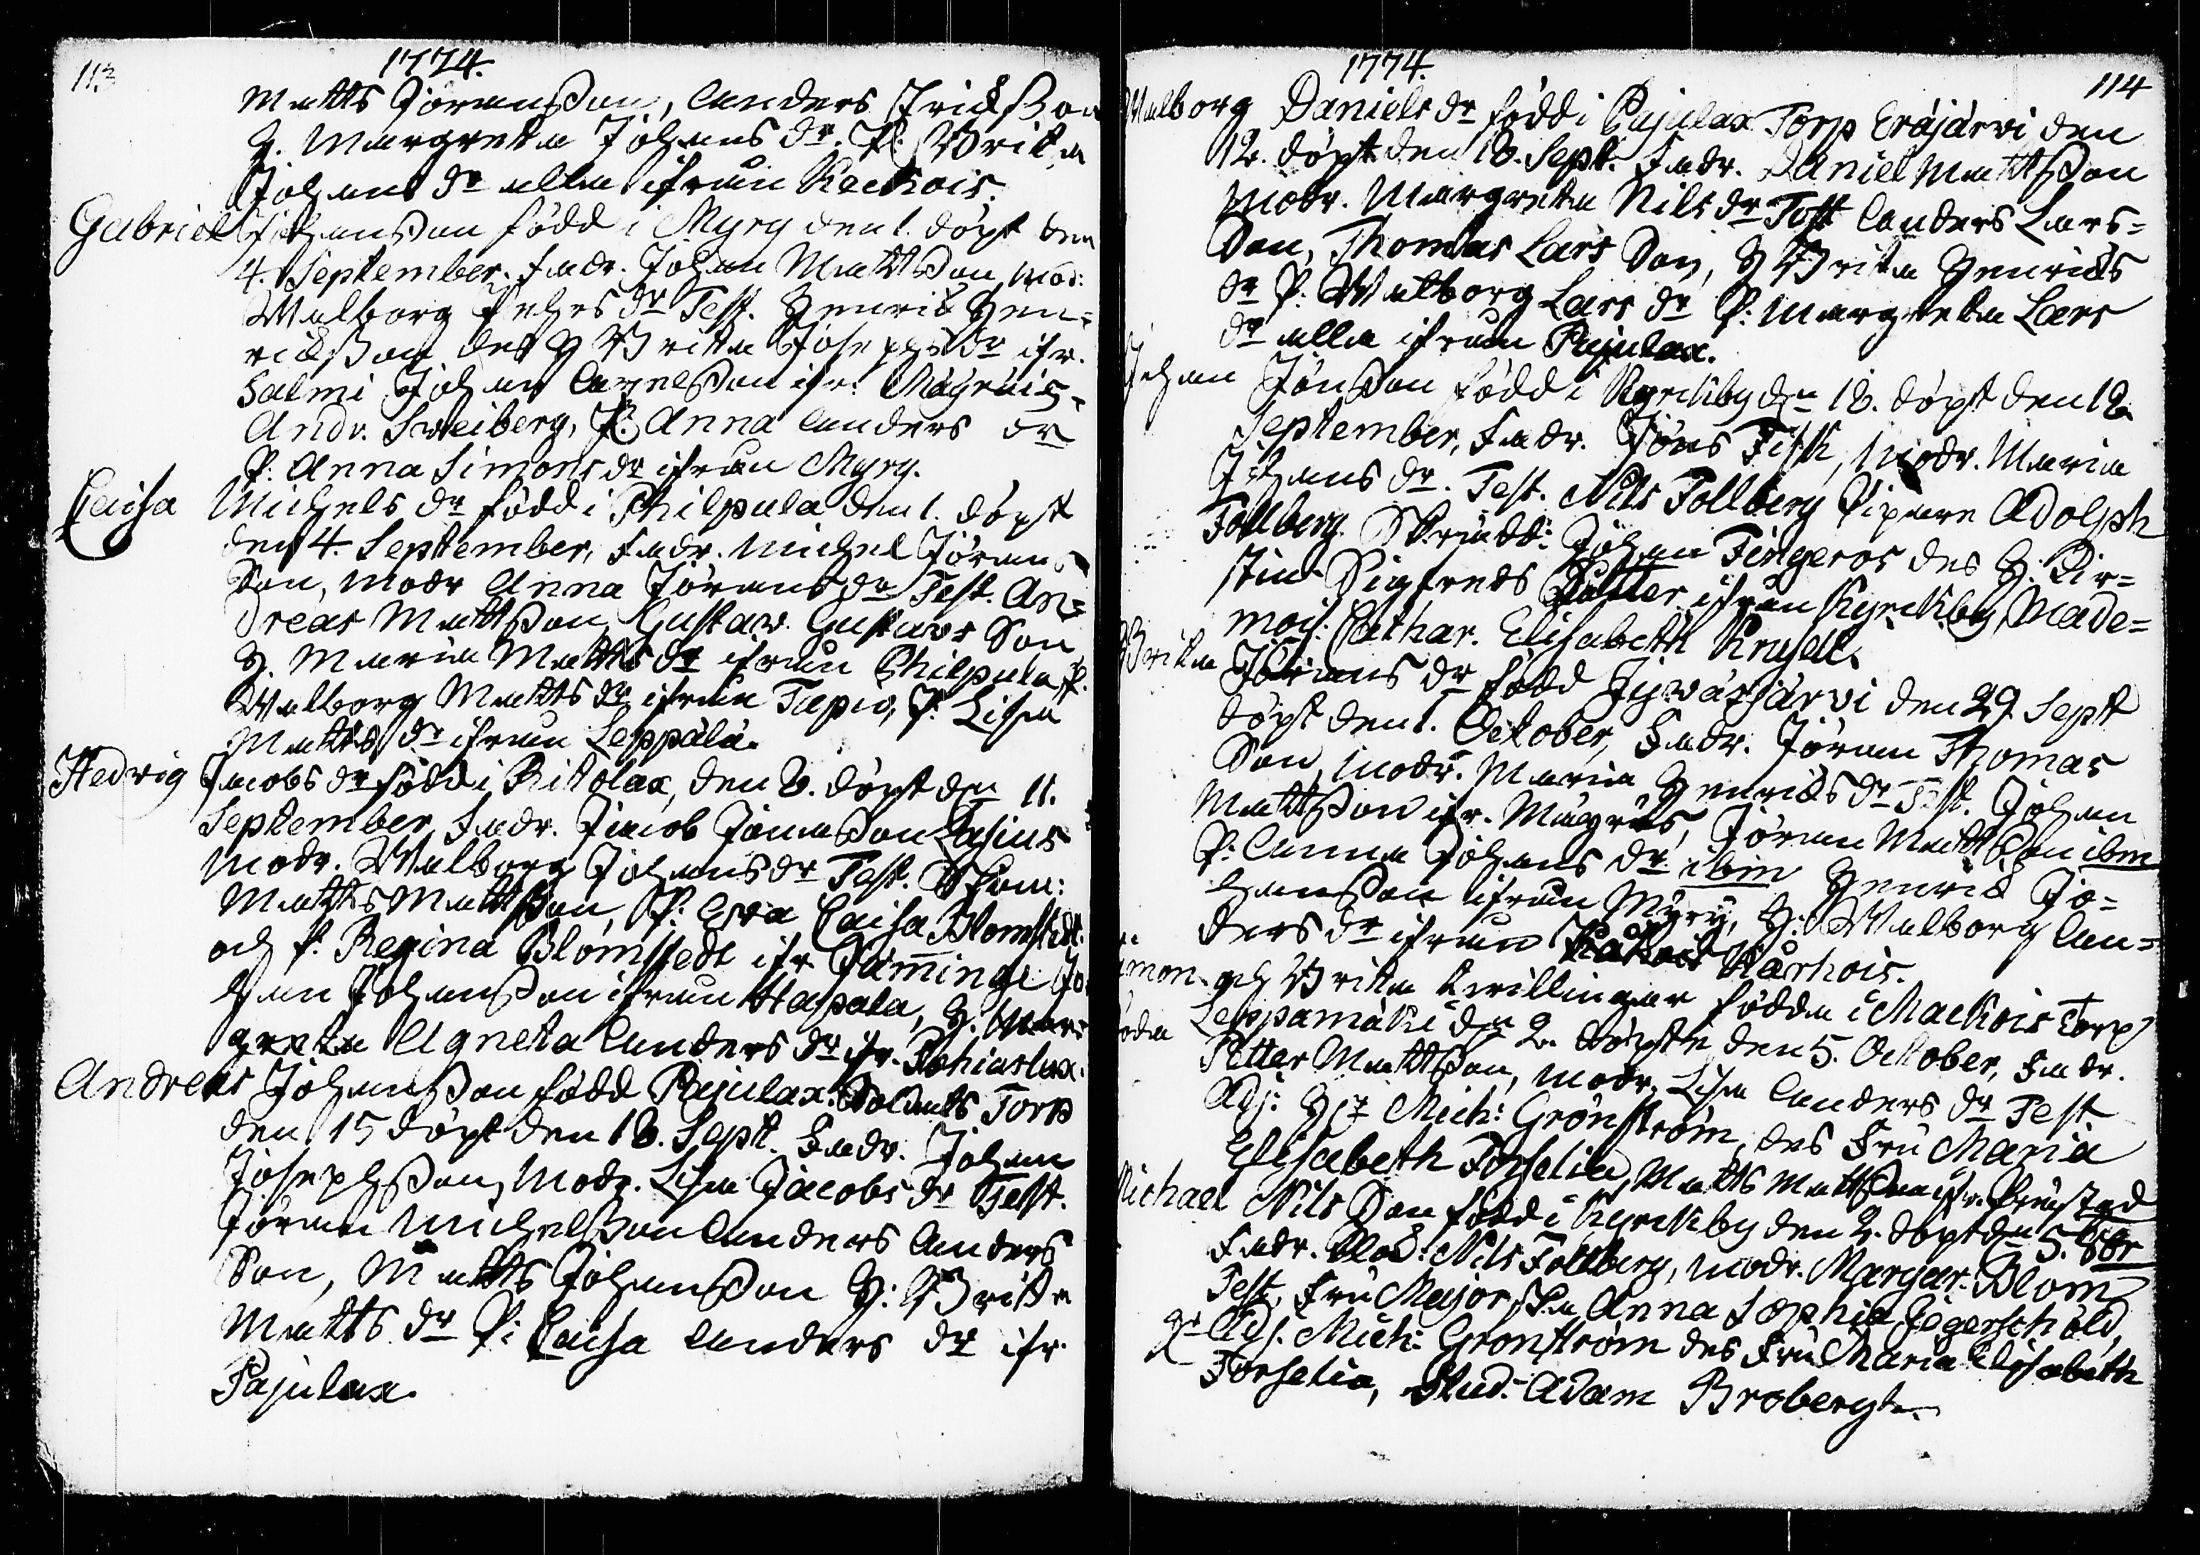 113
1774.
Matts Jöransson, Anders Ericksson
H. Margreta Johans dr. P. Brita
Johans dr alla ifrån Kackois.
Gabriel Johansson född i Myry den 1. döpt den
4. September. Fadr. Johan Mattsson, Mod:
Walborg dr Test. Henrik Hen=
ricksson des H Brita Josephs dr ifr.
Salmi Johan Axelsson ifr.
Andr. Sveiberg, P. Anna Anders dr
P. Anna Simons dr ifrån Myry.
Caisa Michels dr född i Philpula den 1. döpt
den 4. September, Fadr. Michel Jörans
Son, Modr Anna Jörans dr Test. An=
dreas Mattsson, Gustav Gustavs Son
H. Maria Matts dr ifrån Philpula, P.
Walborg Matts dr ifrån Tapio, P. Lisa
Matts dr ifrån Leppälä.
Hedvig Jacobs dr född i Ritolax, den 8. döpt den 11.
September, Fadr. Jacob Casius
Modr. Walborg Johans dr Test.
Matts Mattsson, P: Eva Caisa Blomstedt
och P. Regina Blomstedt ifr Jäminge Jo
han Johansson ifrån Hapala, H. Mar=
greta Agneta Anders dr ifr.
Andreas Johansson född Pajulax Soldats Torp
den 15 döpt den 18. Sept. Fadr. Johan
Josephsson, Modr. Lisa Jacobs dr Test.
Jöran Michelsson Anders Anders
Son, Matts Johansson H: Brita
Matts dr P: Caisa Anders dr ifr.
Pajulax.
1774.
114
Walborg Daniels dr född i Pajulax Torp Eräjärvi den
12. döpt den 18. Sept. Fadr. Daniel Mattsson
Modr. Margreta Nils dr Test Anders Lars=
Son, Thomas Lars Son, H Brita Henricks
dr P: Walborg Lars dr P: Margreta Lars
dr alla ifrån Pajulax.
Johan Jönsson född i Kyrckby den 18. döpt den 18
September, Fadr. Jöns Fisk, Modr. Maria
Johans dr. Test. Nils Follberg Pipare Adolph
Follberg Skrädd: Johan Fingeroos des H. Kir=
stin Sigfreds Dotter ifrån Kyrckby, Made=
mois: Cathar. Elisabeth Krusell.
Brita Jörans dr född den 29 Sept
döpt den 1. October, Fadr. Jöran Thomas
Son, Modr. Maria Henricks dr Test. Johan
Mattsson ifr. Jöran Mattsson ibm
P: Anna Johans dr ibm Henrick Jo=
hansson ifrån Myry, H: Walborg An=
ders dr ifrån Kårkois.
och Brita twillingar födda i Mackois Torp
Leppämäki den 2. döpte den 5. October, Fadr.
Petter Mattsson, Modr. Lisa Anders dr Test
Adj: Hr Mich: Grönström, des Fru Maria
Elisabeth Forselia, Matts Mattsson ifr. Prustgd
Michael Nils Son född i Kyrckby den 2. döpt den 5. 8br
Fadr. Nils Follberg, Modr. Margar. Blom
Test. Fru Majorskan Anna Sophia Jegerschöld,
Hr Adj. Mich: Grönström des Fru Maria Elisabeth
Forselia, Stud. Adam Brobergh.